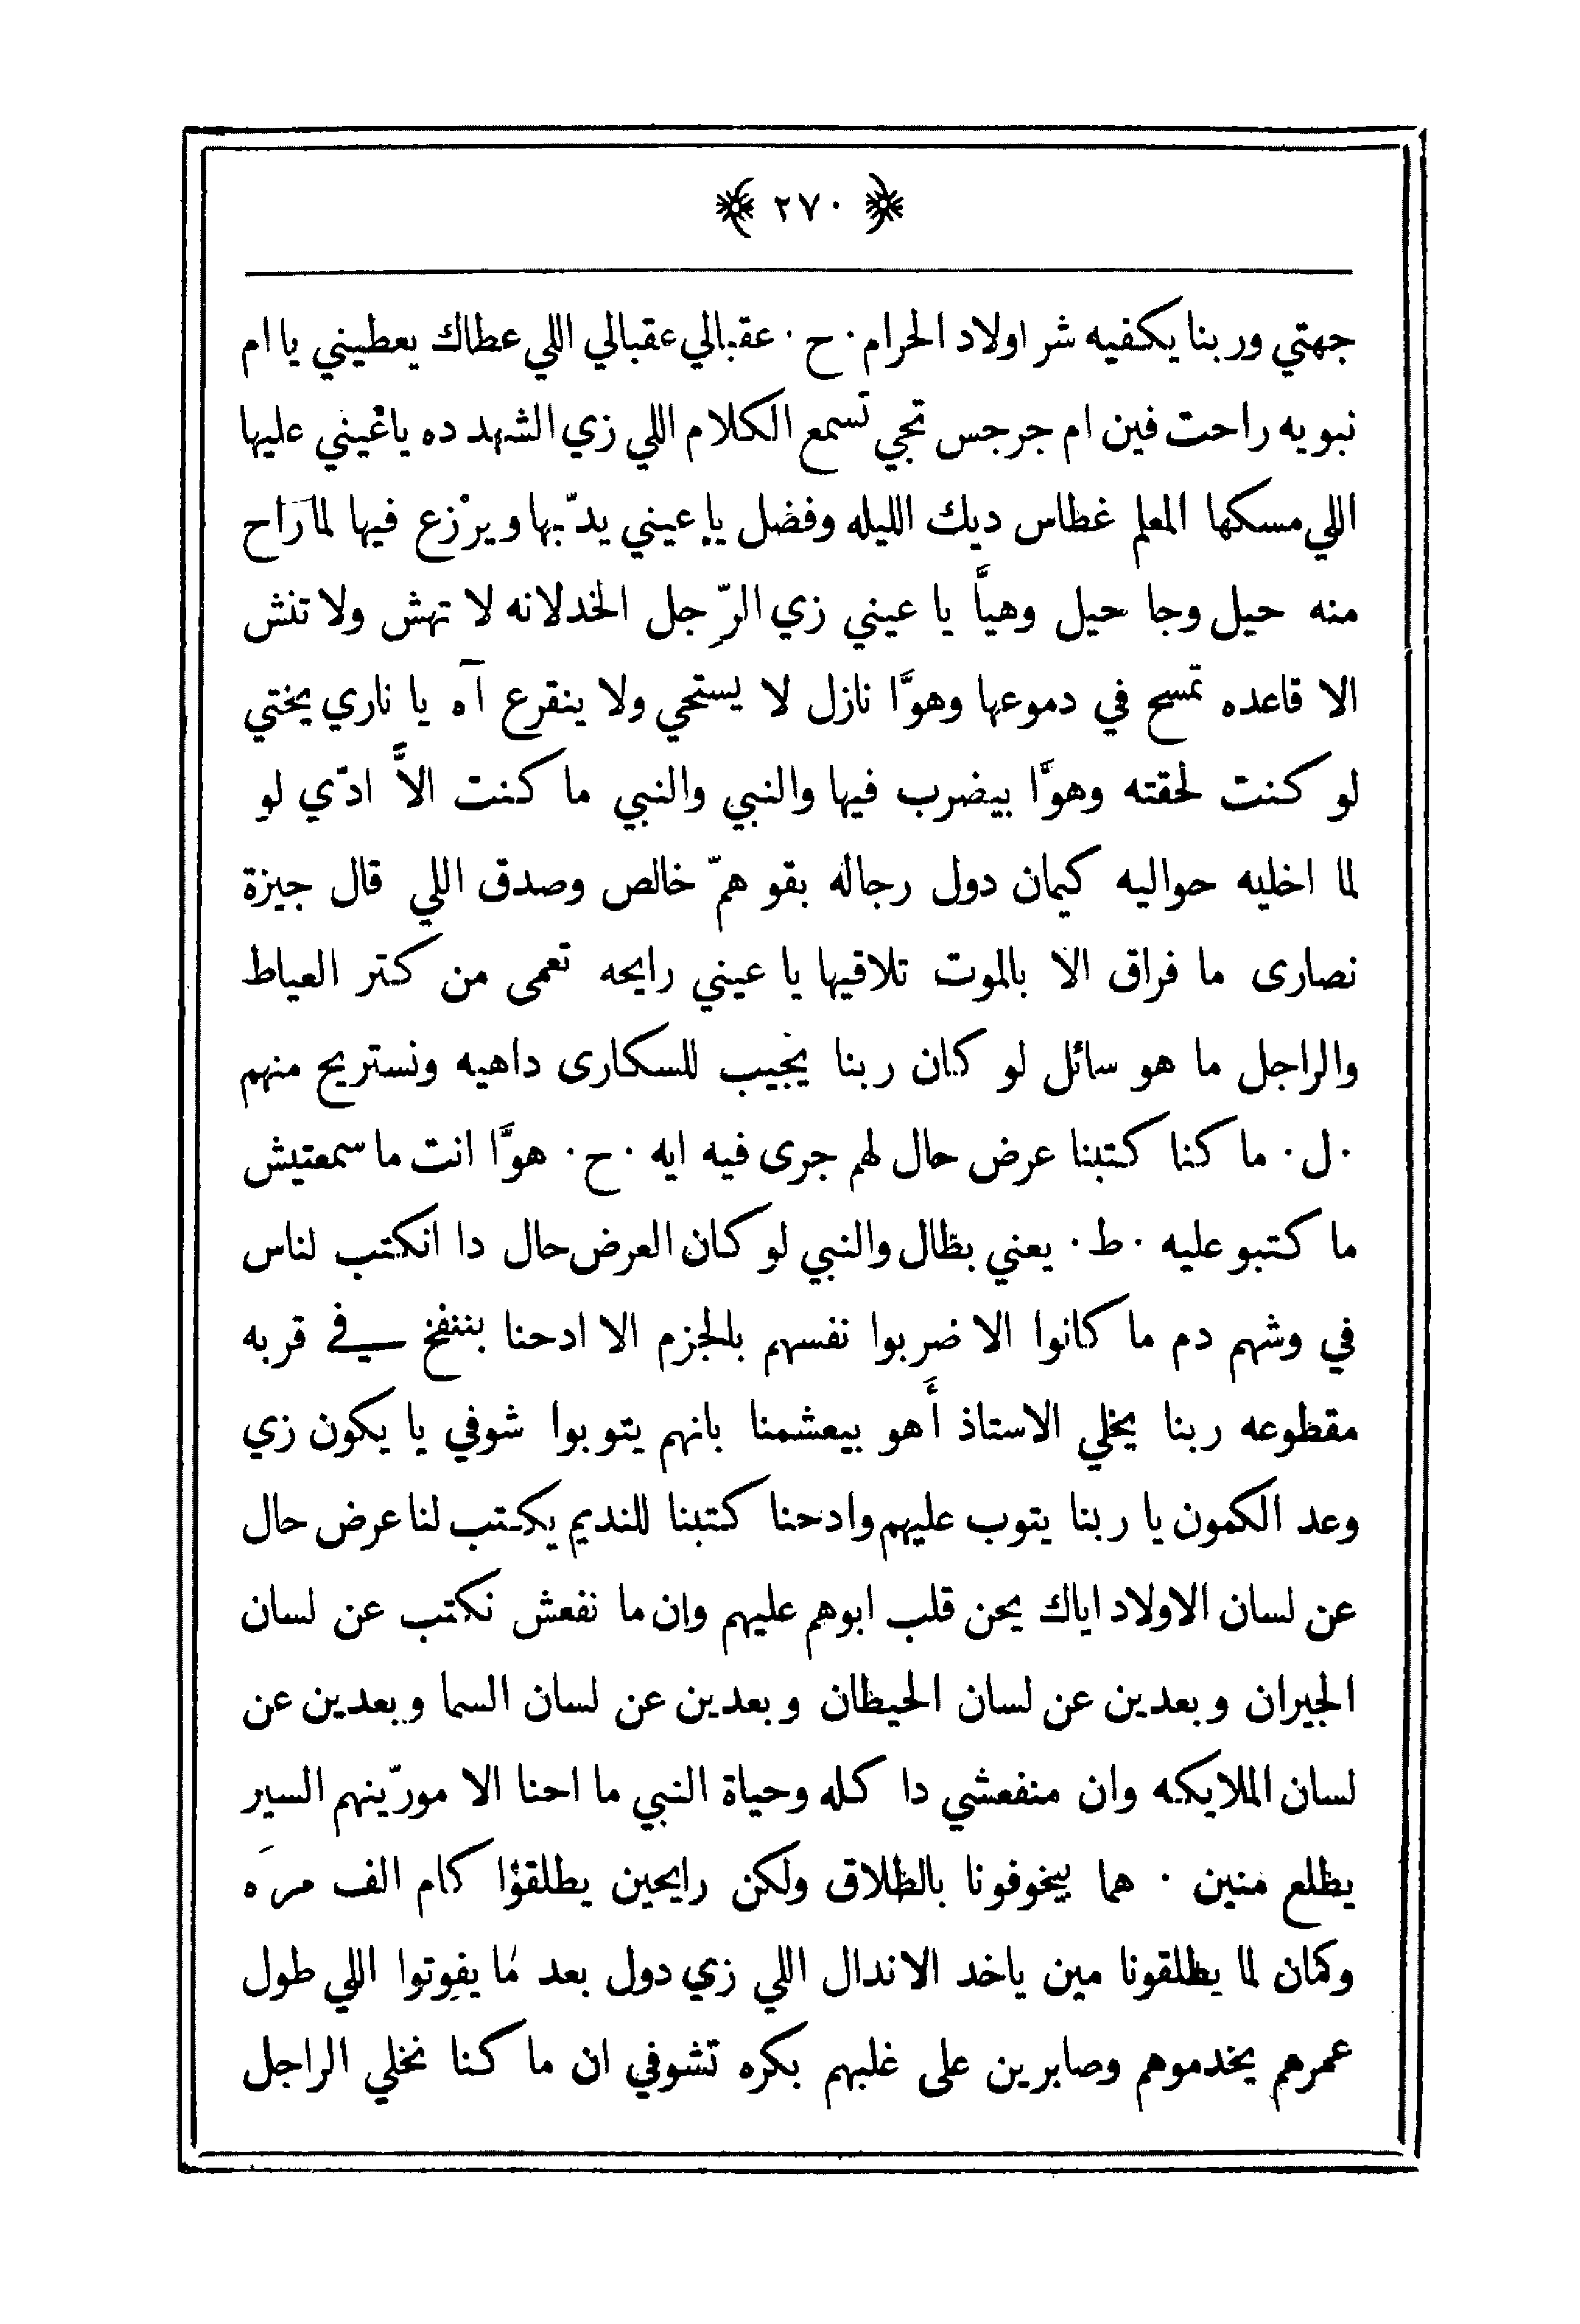 ٢٧٠
جهتي وربنا يكفيه شر اولاد الحرام ٠ ح ٠ عقبالي عقبالي اللي عطاك يعطيني يا ام
نبويه راحت فين ام جرجس تجي تسمع الكلام اللي زي الشهد ده ياعيني عليها
اللي مسكها المعلم غطاس ديك الليله وفضل ياعيني يدّبها ويرْزع فيها لمارَاح
منه حيل وجا حيل وهيَّا يا عيني زي الرِّجل الخدلانه لا تهش ولا تنش
الا قاعده تمسح في دموعها وهوَّا نازل لا يستحي ولا ينقرع آه يا ناري يختي
لو كنت لحقته وهوَّا بيضرب فيها والنبي والنبي ما كنت الاَّ ادّي لو
لما اخليه حواليه كيمان دول رجاله بقو همّ خالص وصدق اللي قال جيزة
نصارى ما فراق الا بالموت تلاقيها يا عيني رايحه تعمى من كتر العياط
والراجل ما هو سائل لو كان ربنا يجيب للسكارى داهيه ونستريح منهم
٠ ل ٠ ما كنا كتبنا عرض حال لهم جرى فيه ايه ٠ ح ٠ هوَّا انت ما سمعتيش
ما كتبو عليه ٠ ط ٠ يعني بظال والنبي لو كان العرض حال دا انكتب لناس
في وشهم دم ما كانوا الا ضربوا نفسهم بالجزم الا ادحنا بننفخ في قربه
مقطوعه ربنا يخلي الاستاذ أَهو بيعشمنا بانهم يتوبوا شوفي يا يكون زي
وعد الكمون يا ربنا يتوب عليهم وادحنا كتبنا للنديم يكتب لنا عرض حال
عن لسان الاولاد اياك يحن قلب ابوهم عليهم وان ما نفعش نكتب عن لسان
الجيران وبعدين عن لسان الحيطان وبعدين عن لسان السما وبعدين عن
لسان الملايكه وان منفعشي دا كله وحياة النبي ما احنا الا مورّينهم السير
يظلع منين ٠ هما بيخوفونا بالطلاق ولكن رايحين يطلقوا كام الف مرَه
وكمان لما يطلقونا مين ياخد الاندال اللي زي دول بعد ما يفوتوا اللي طول
عمرهم يخدموهم وصابرين على غلبهم بكره تشوفي ان ما كنا نخلي الراجل